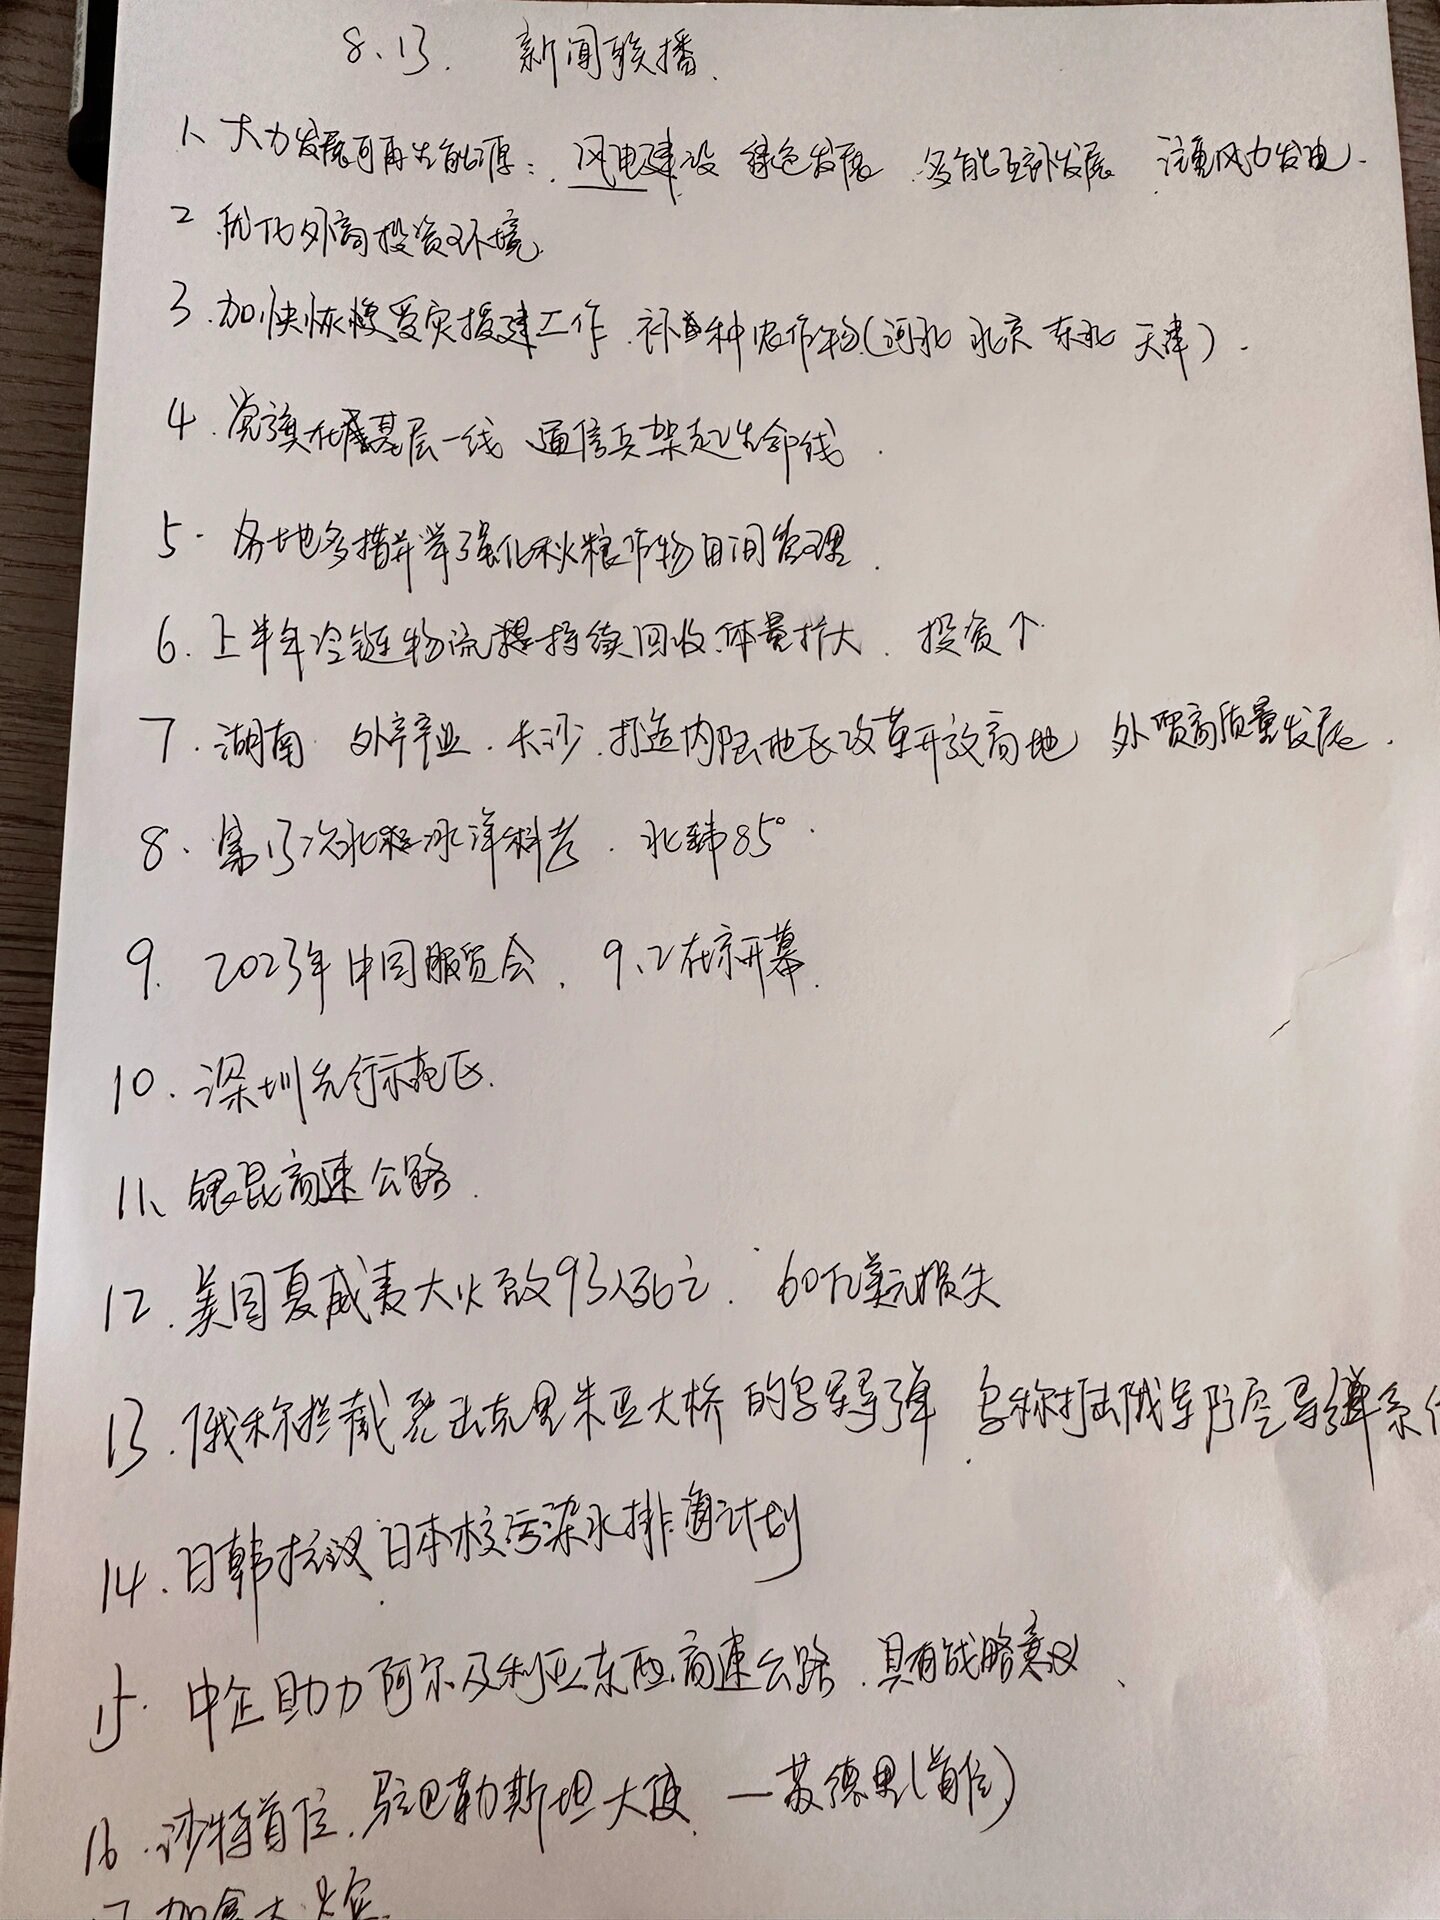 8、13. 新闻联播.
1、大力发展可再生能源：风电建设 绿色发展 多能互补发展 注重风力发电.
2 优化外商投资环境.
3.加快恢复受灾援建工作.补种农作物(河北 北京 东北 天津).
4.党旗在基层一线 通信兵架起生命线.
5.各地多措并举强化秋粮作物田间管理.
6.上半年冷链物流持续回收.体量扩大.投资个
7.湖南 产业.长沙.打造内陆地区改革开放高地 外贸高质量发展.
8.第13次北极冰洋科考.北纬85°.
9. 2023年中国服贸会.9、2在京开幕.
10.深圳先行示范区.
11、银昆高速公路.
12.美国夏威夷大火致93人死亡.60亿美元损失
13.俄称拦截袭击克里米亚大桥的乌军导弹.乌称打击俄军防空导弹系
14.日韩抗议日本核污染水排海计划
15.中企助力阿尔及利亚东西高速公路.具有战略意义、
16.沙特首位.驻巴勒斯坦大使.—苏德里(首位)
17加拿大火灾